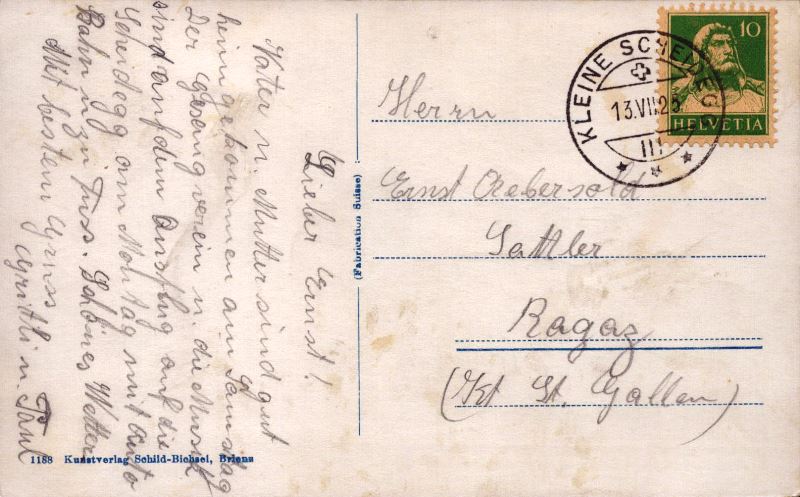 Lieber Ernst!
Vater u. Mutter sind gut
heimgekommen am Samstag
Der Gesangverein u. die Musik
sind auf dem Ausflug auf die
Scheidegg am Montag mit Auto
Bahn u. zu Fuss. Schönes Wetter
Mit bestem Gruss
Gritli u. Paul
1188 Kunstverlag Schild-Bichsel, Brienz
(Fabrication Suisse)
KLEINE SCHEIDEGG
13.VII.25
III
10
HELVETIA
Herrn
Ernst Aebersold
Sattler
Ragaz
(Kt St. Gallen)